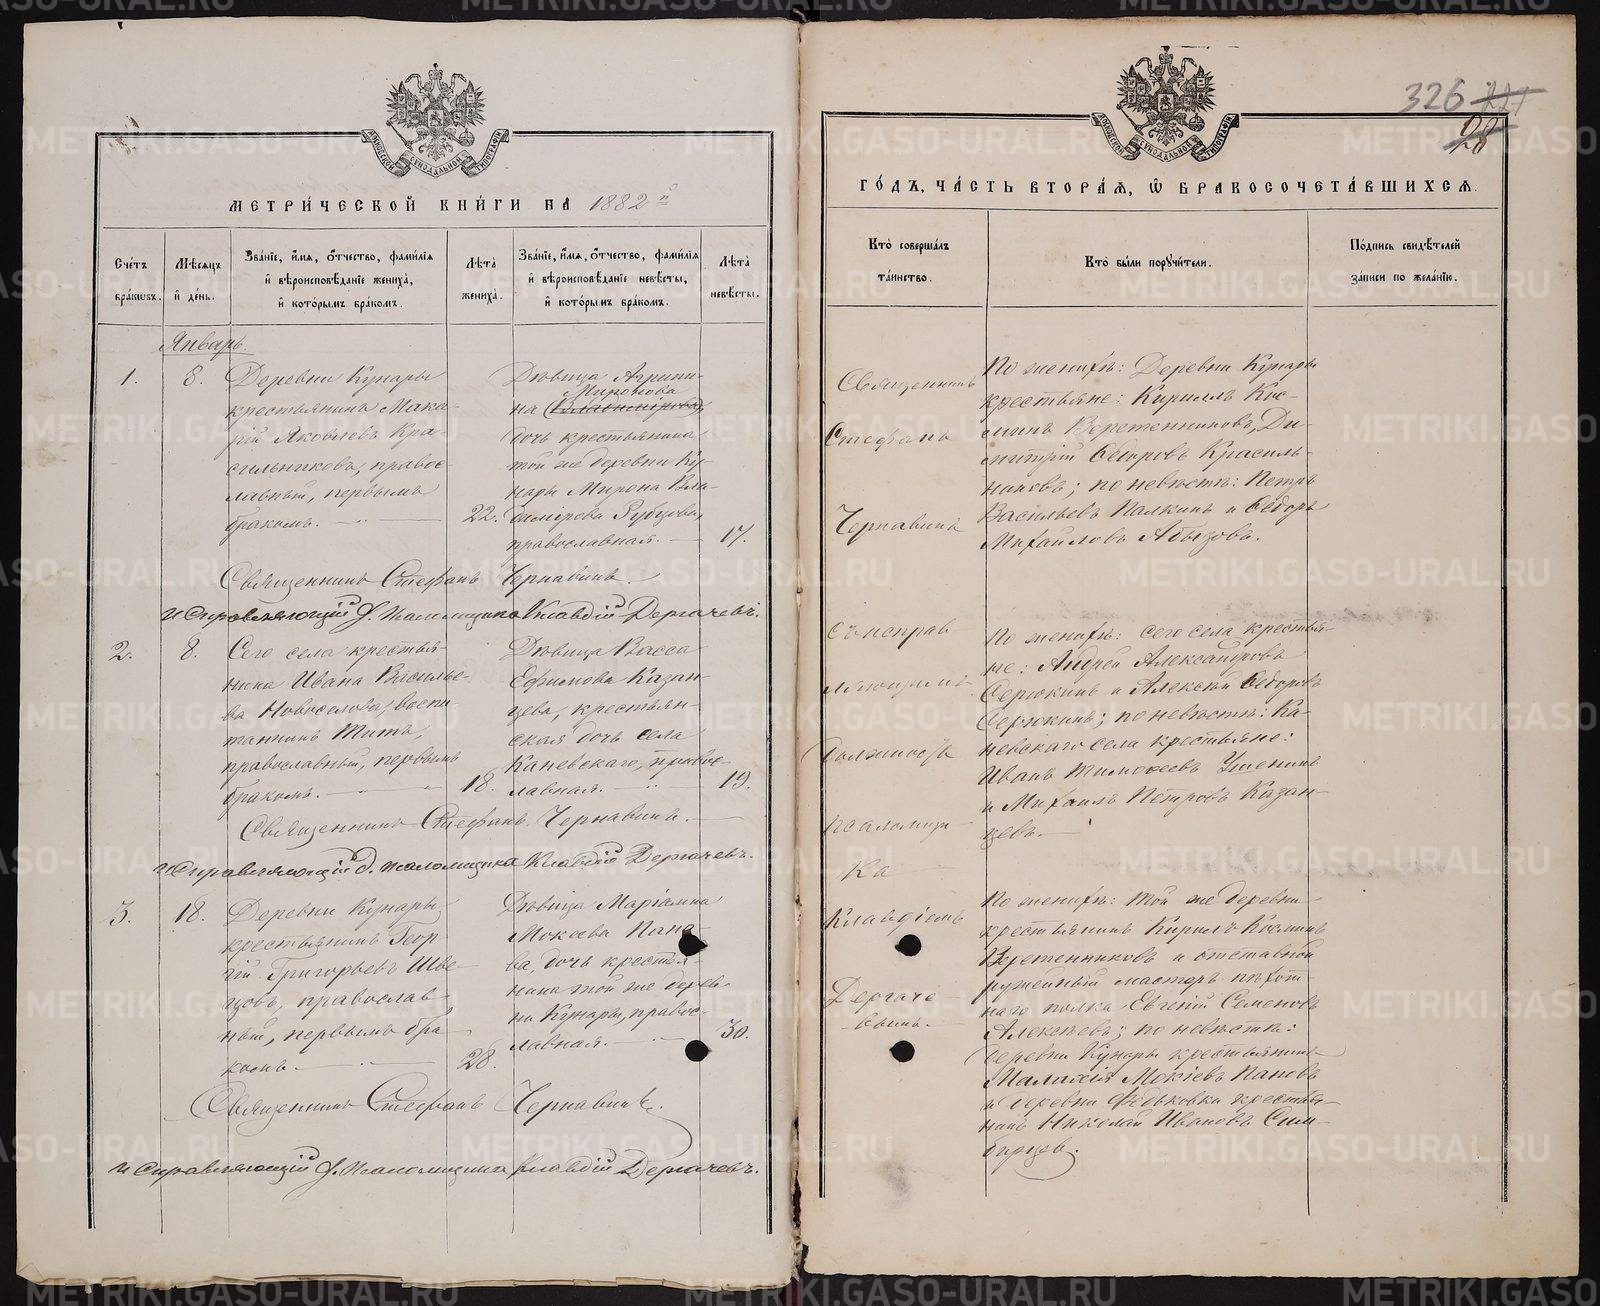 МЕТРИ́ЧЕСКОЙ КНИ́ГИ НА 1882й
Сче́тъ бра́ковъ.
Мѣ́сяцъ и де́нь.
Зва́нїе, и́мя, о́тчество, фами́лїя и вѣроисповѣ́данїе жениха̀, и кото́рымъ бра́комъ.
Лѣ́та жениха̀.
Зва́нїе, и́мя, о́тчество, фами́лїя и вѣроисповѣ́данїе невѣ́сты, и кото́рымъ бра́комъ.
Лѣ́та невѣ́сты.
Январь.
1.
8.
Деревни Кунары
крестьянинъ Мака-
рій Яковлевъ Кра-
сильниковъ, правос-
лавный, первымъ
бракомъ.
22.
Дѣвица Агрипи-
Миронова
на (Владимірова)
дочь крестьянина
той же деревни Ку-
нары Мирона Вла-
димірова Зубцова,
православная.
17.
Священникъ Стефанъ Чернавинъ.
и Справляющій д. псаломщика Клавдій Дергачевъ.
2.
8.
Сего села крестья-
нина Ивана Василье-
ва Новоселова, воспи-
танникъ Титъ,
православный, первымъ
бракомъ.
18.
Дѣвица Васса
Ефимова Казан-
цева, крестьян-
ская дочь села
Каневскаго, правос-
лавная.
19.
Священникъ Стефанъ Чернавинъ.
и Справляющій д. псаломщика Клавдій Дергачевъ.
3.
18.
Деревни Кунары
крестьянинъ Геор-
гій Григорьевъ Шве-
цовъ, православ-
ный, первымъ бра-
комъ.
28.
Дѣвица Маріамна
Мокеева Пано-
ва, дочь крестья-
нина той же дерев-
ни Кунары, правос-
лавная.
30.
Священникъ Стефанъ Чернавинъ.
и Справляющій д. псаломщика Клавдій Дергачевъ.
326
28
ГО́ДЪ, ЧА́СТЬ ВТОРА́Я, Ѿ БРАКОСОЧЕТА́ВШИХСЯ.
Кто̀ соверша́лъ та́инство.
Кто̀ бы́ли поручи́тели.
По́дпись свидѣ́телей за́писи по жела́нїю.
Священникъ
Стефанъ
Чернавинъ
Съ исправ
ляющимъ
должность
псаломщи
ка
Клавдіемъ
Дергаче
вымъ.
По женихѣ: Деревни Кунары
крестьяне: Кириллъ Кос-
минъ Веретенниковъ, Ди-
митрій Ѳедоровъ Красиль-
никовъ; по невѣстѣ: Петръ
Васильевъ Палкинъ и Ѳедоръ
Михайловъ Абызовъ.
По женихѣ: сего села крестья-
не: Андрей Александровъ
Серюкинъ и Алексѣй Ѳедоровъ
Серюкинъ; по невѣстѣ: Ка-
невскаго села крестьяне:
Иванъ Тимоѳеевъ Ушенинъ
и Михаилъ Петровъ Казан-
цевъ.
По женихѣ: той же деревни
крестьянинъ Кирилъ Косминъ
Веретенниковъ и отставной
ружейный мастеръ пѣхот-
наго полка Евгеній Семеновъ
Алексѣевъ; по невѣстѣ:
деревни Кунары крестьянинъ
Малахія Мокіевъ Пановъ
и деревни Ѳедьковки крестья-
нинъ Николай Ивановъ Сим-
бирцев.